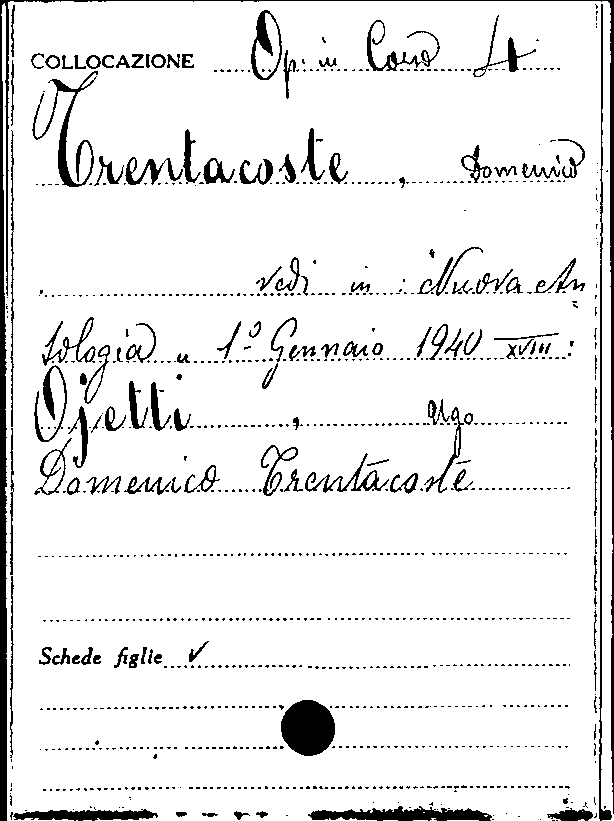 COLLOCAZIONE Op. in Corso
Trentacoste, Domenico
vedi in: "Nuova An
tologia" 1° Gennaio 1940 XVIII:
Ojetti, Ugo
Domenico Trentacoste
Schede figlie ✓